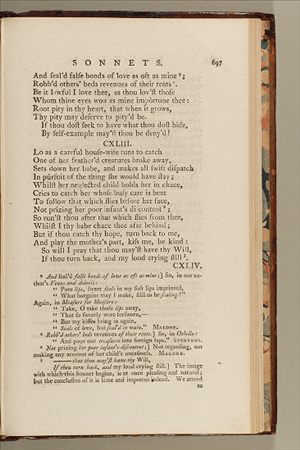 SONNETS. 697
And ſeal'd falſe bonds of love as oft as mine ⁸;
Robb'd others' beds revenues of their rents ⁹.
Be it lawful I love thee, as thou lov'ſt thoſe
Whom thine eyes woo as mine impórtune thee:
Root pity in thy heart, that when it grows,
Thy pity may deſerve to pity'd be.
If thou doſt ſeek to have what thou doſt hide,
By ſelf-example may'ſt thou be deny'd!
CXLIII.
Lo as a careful houſe-wife runs to catch
One of her feather'd creatures broke away,
Sets down her babe, and makes all ſwift diſpatch
In púrſuit of the thing ſhe would have ſtay;
Whilſt her neglected child holds her in chace,
Cries to catch her whoſe buſy care is bent
To follow that which flies before her face,
Not prizing her poor infant's diſcontent;
So run'ſt thou after that which flies from thee,
Whilſt I thy babe chace thee afar behind;
But if thou catch thy hope, turn back to me,
And play the mother's part, kiſs me, be kind:
So will I pray that thou may'ſt have thy Will,
If thou turn back, and my loud crying ſtill.
CXLIV.
And ſeal'd falſe bonds of love as oft as mine;] So, in our au-
thor's Venus and Adonis:
" Pure lips, ſweet ſeals in my ſoft lips imprinted,
" What bargains may I make, ſtill to be ſealing?"
Again, in Meaſure for Meaſure:
" Take, O take thoſe lips away,
" That ſo ſweetly were forſworn,—
" But my kiſſes bring in again,
" Seals of love, but ſeal'd in vain." MALONE.
Robb'd others' beds revenues of their rents.] So, in Othello:
" And pour our treaſures into foreign laps." STEEVENS.
Not prizing her poor infant's diſcontent;] Not regarding, not
making any account of her child's uneaſineſs. MALONE.
—— that thou may'ſt have thy Will,
If thou turn back, and my loud crying ſtill.] The image
with which this Sonnet begins, is at once pleaſing and natural;
but the concluſion of it is lame and impotent indeed. We attend
to